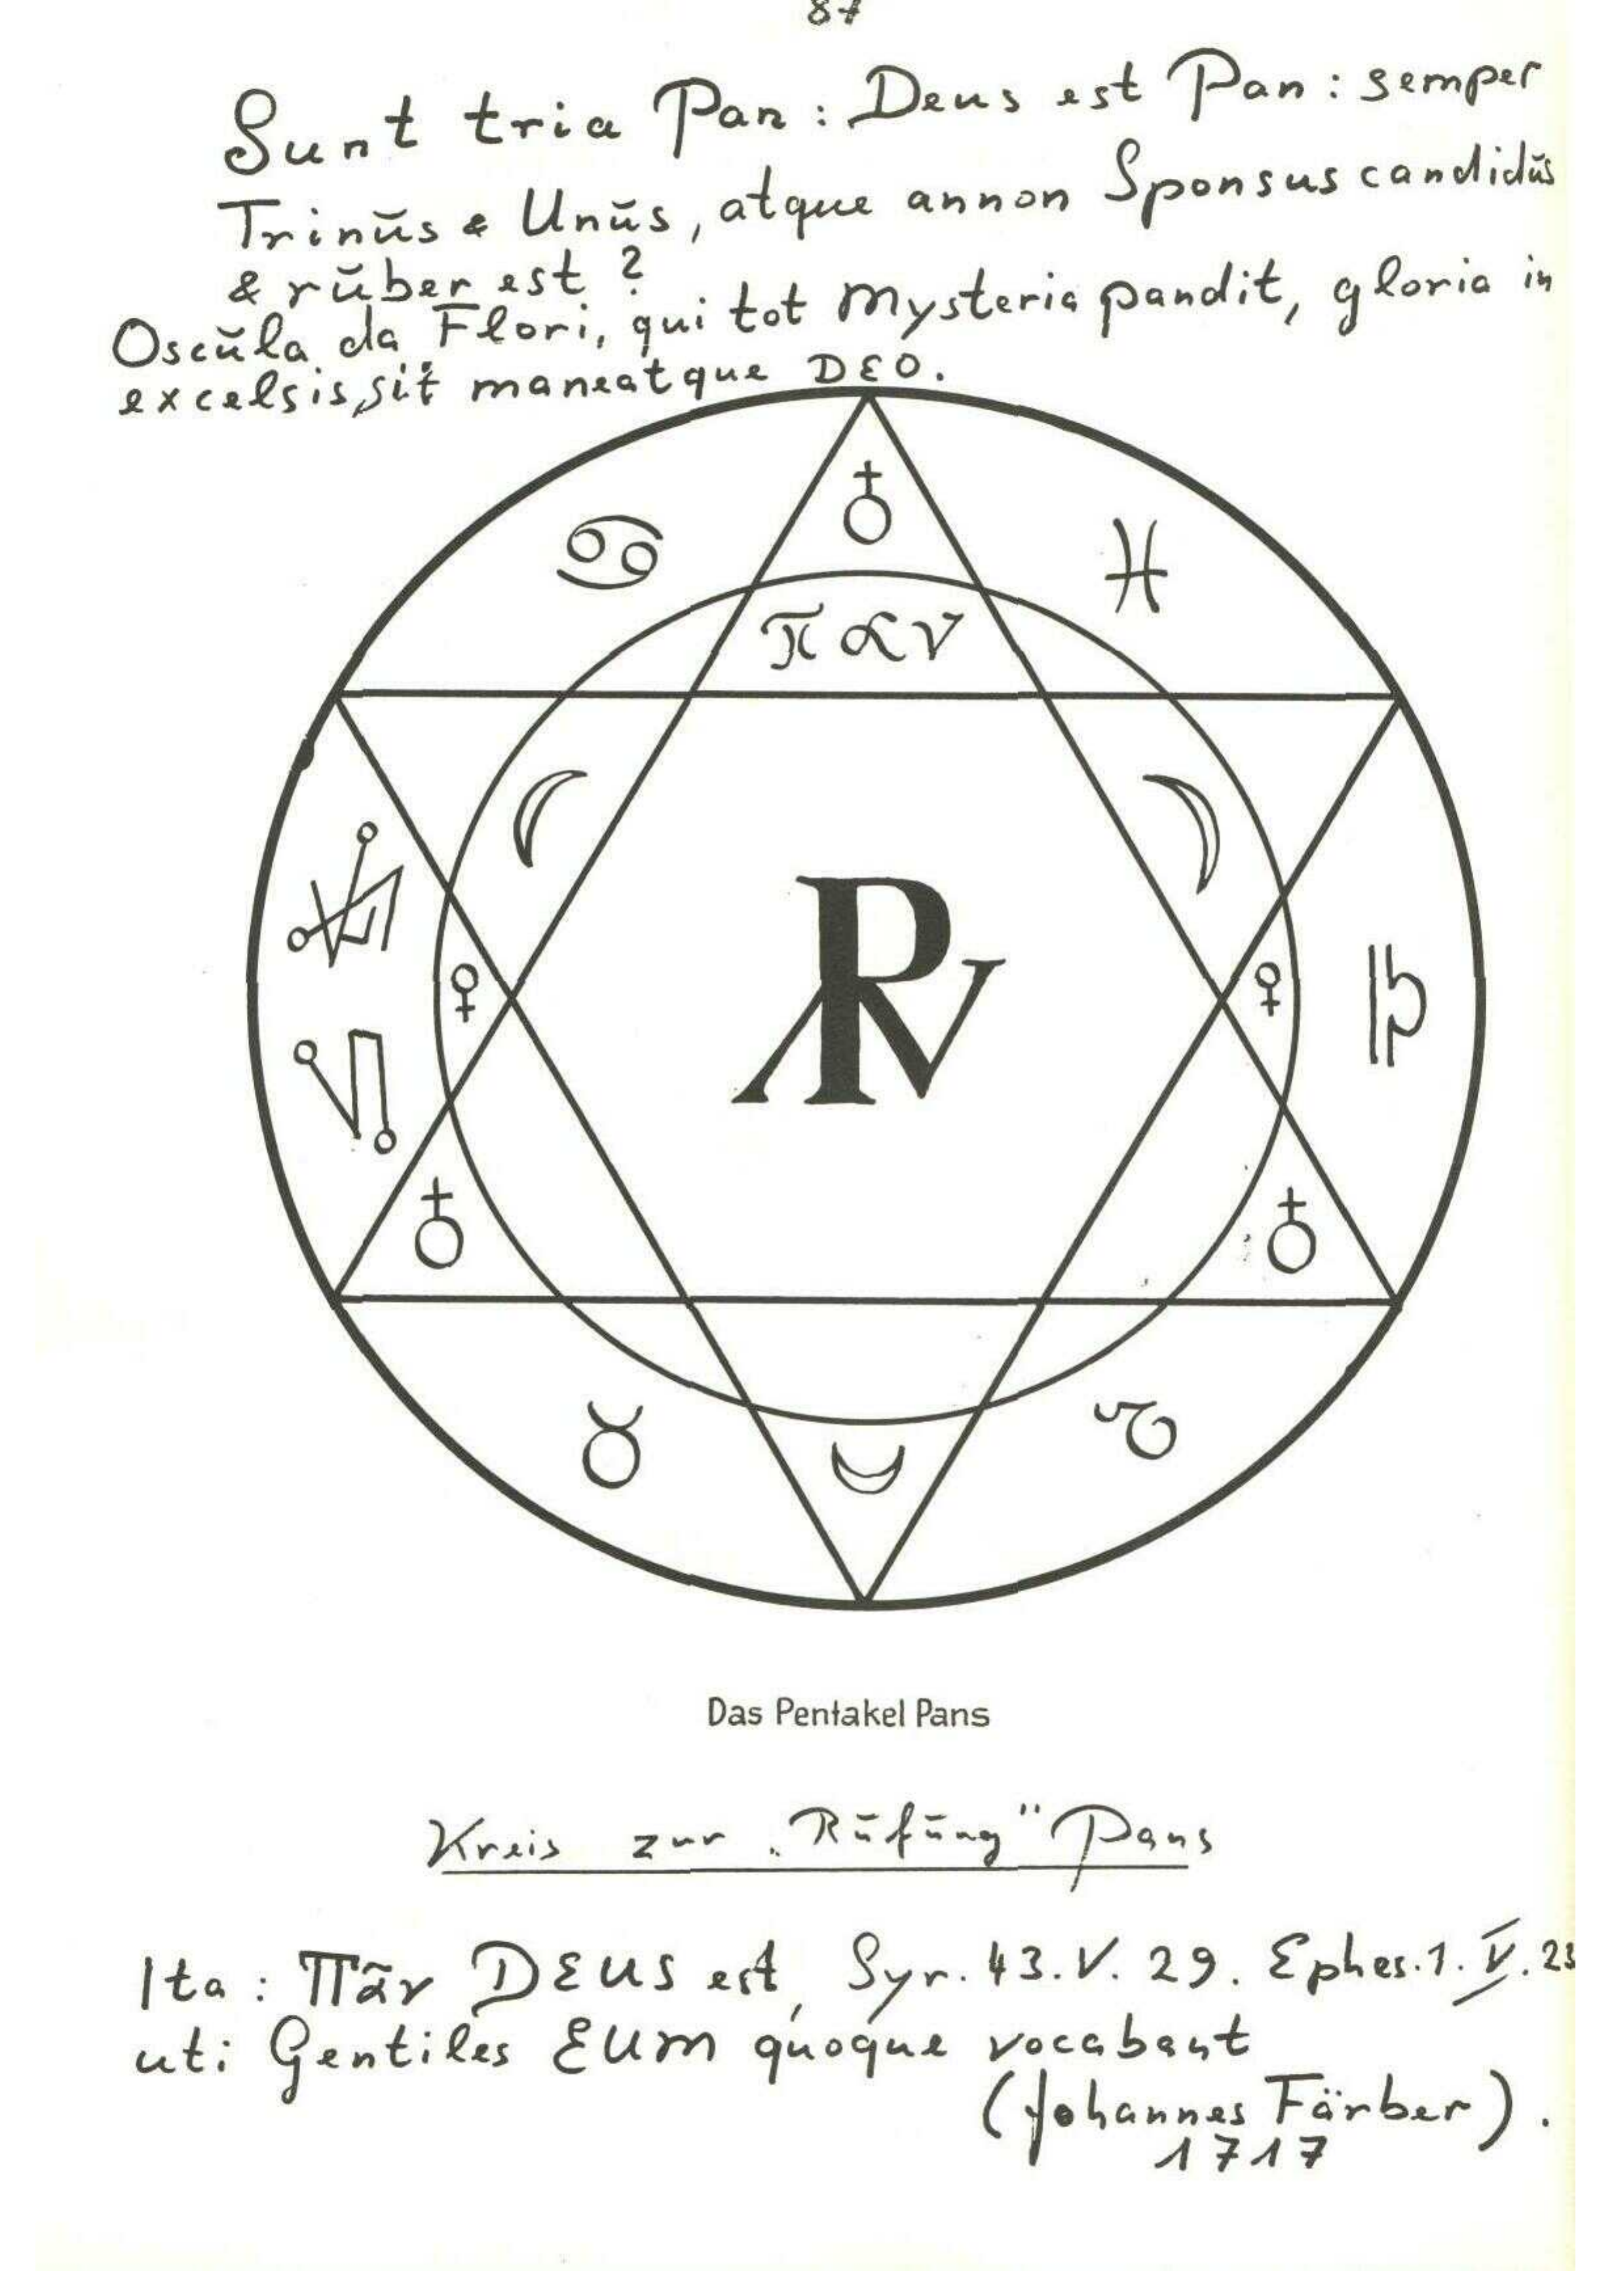 87
Sunt tria Pan : Deus est Pan : semper
Trinŭs & Unŭs, atque annon Sponsus candidŭs
& rŭber est ?
Oscŭla da Flori, qui tot Mysteria pandit, gloria in
excelsis, sit maneatque DEO.
παν
Das Pentakel Pans
Kreis zur „Rŭfŭng" Pans
Ita : Πᾶν DEUS est, Syr. 43. V. 29. Ephes. 1. V. 23
uti Gentiles EUM quoque vocabant
(Johannes Färber).
1717